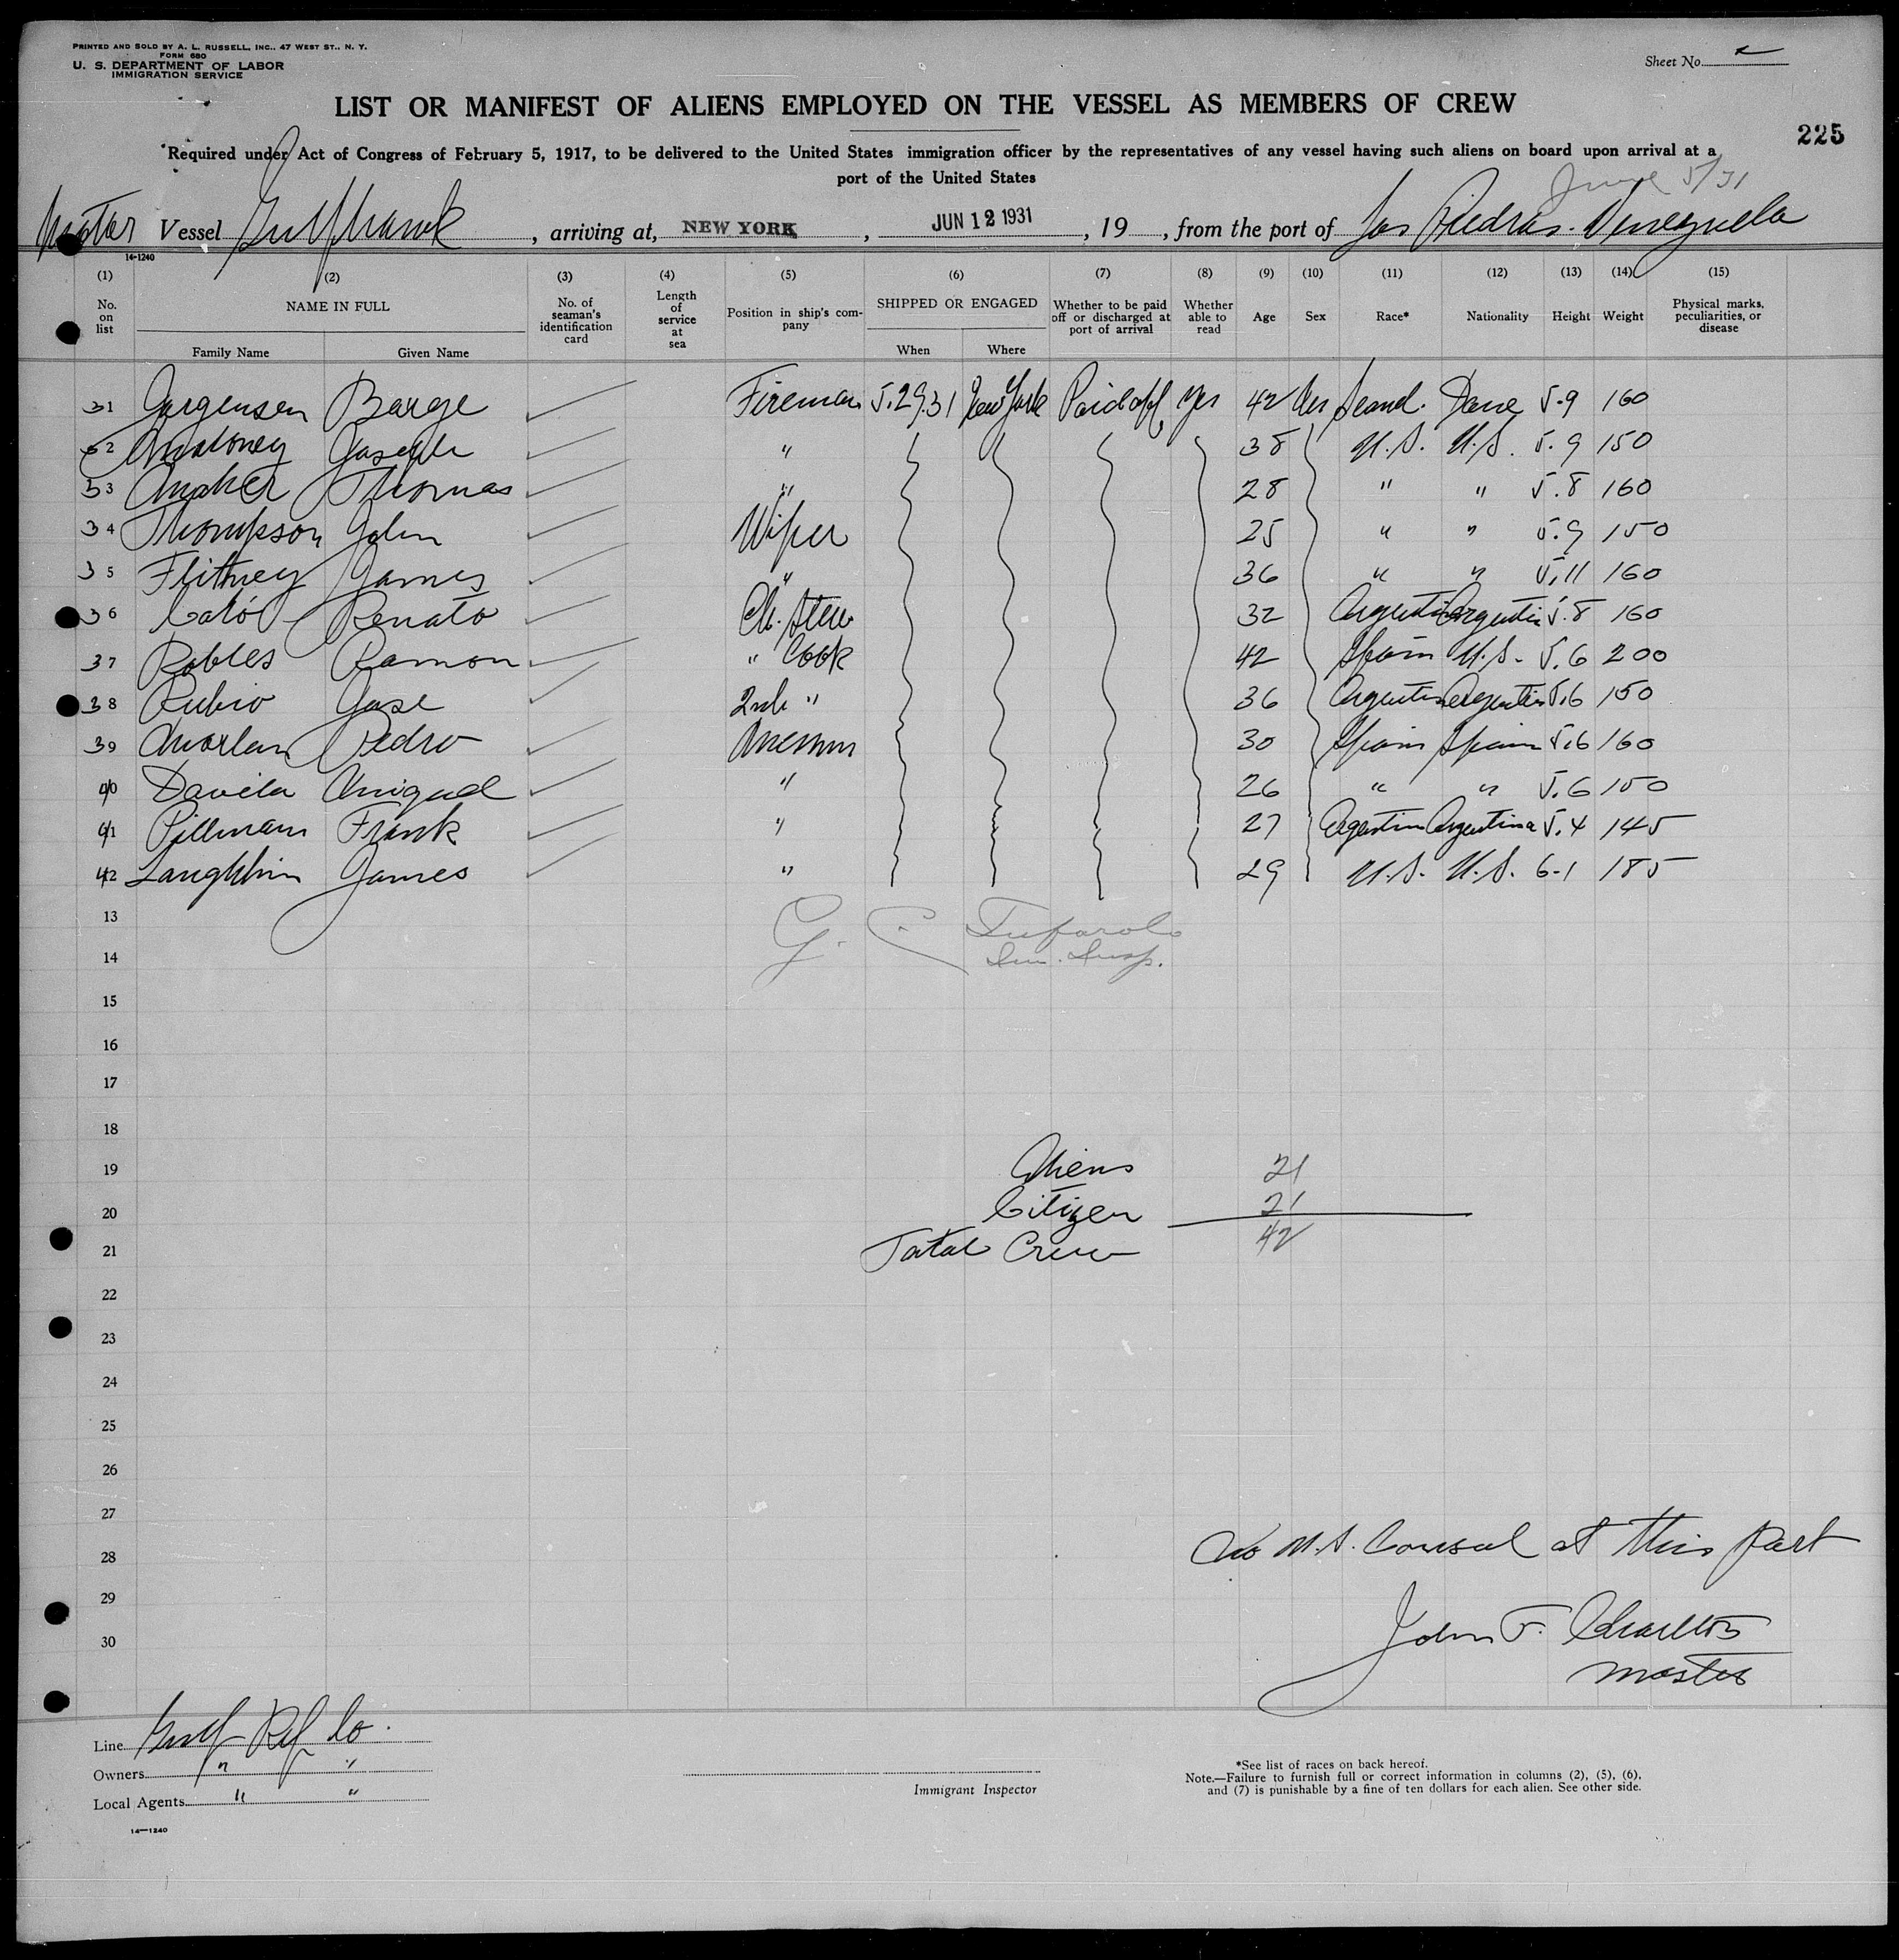 PRINTED AND SOLD BY A. L. RUSSELL, INC., 47 WEST ST., N. Y.
FORM 680
U. S. DEPARTMENT OF LABOR
IMMIGRATION SERVICE
Sheet No. 2
LIST OR MANIFEST OF ALIENS EMPLOYED ON THE VESSEL AS MEMBERS OF CREW
225
Required under Act of Congress of February 5, 1917, to be delivered to the United States immigration officer by the representatives of any vessel having such aliens on board upon arrival at a
port of the United States
June 5/31
Vessel Gulfhawk, arriving at, NEW YORK, JUN 12 1931, 19 , from the port of Las Piedras. Venezuela
14-1240
(1) (2) (3) (4) (5) (6) (7) (8) (9) (10) (11) (12) (13) (14) (15)
No. on list NAME IN FULL No. of seaman's identification card Length of service at sea Position in ship's company SHIPPED OR ENGAGED Whether to be paid off or discharged at port of arrival Whether able to read Age Sex Race* Nationality Height Weight Physical marks, peculiarities, or disease
Family Name Given Name When Where
31 Jorgensen Barge Fireman 5.29.31 New York Paid off yes 42 Scand. Dane 5.9 160
32 Maloney Joseph " 38 U.S. U.S. 5.9 150
33 Maher Thomas " 28 " " 5.8 160
34 Thompson John Wiper 25 " " 5.9 150
35 Flithney James " 36 " " 5.11 160
36 Cató Renato Ch. Stew 32 Argentin Argentin 5.8 160
37 Robles Ramon " Cook 42 Spain U.S. 5.6 200
38 Rubio Jose 2nd " 36 Argentin Argentin 5.6 150
39 Pedro Messman 30 Spain Spain 5.6 160
40 Davila Miguel " 26 " " 5.6 150
41 Pillman Frank " 27 Argentina Argentina 5.4 145
42 Laughlin James " 29 U.S. U.S. 6-1 185
13 G. C.
14 Im. Insp.
15
16
17
18
19 Aliens 21
20 Citizen 21
21 Total Crew 42
22
23
24
25
26
27
28 No U.S. Consul at this port
29
30 John F. Charlton
Master
Line Gulf Ref Co.
Owners " "
Local Agents " "
14—1240
Immigrant Inspector
*See list of races on back hereof.
Note.—Failure to furnish full or correct information in columns (2), (5), (6),
and (7) is punishable by a fine of ten dollars for each alien. See other side.